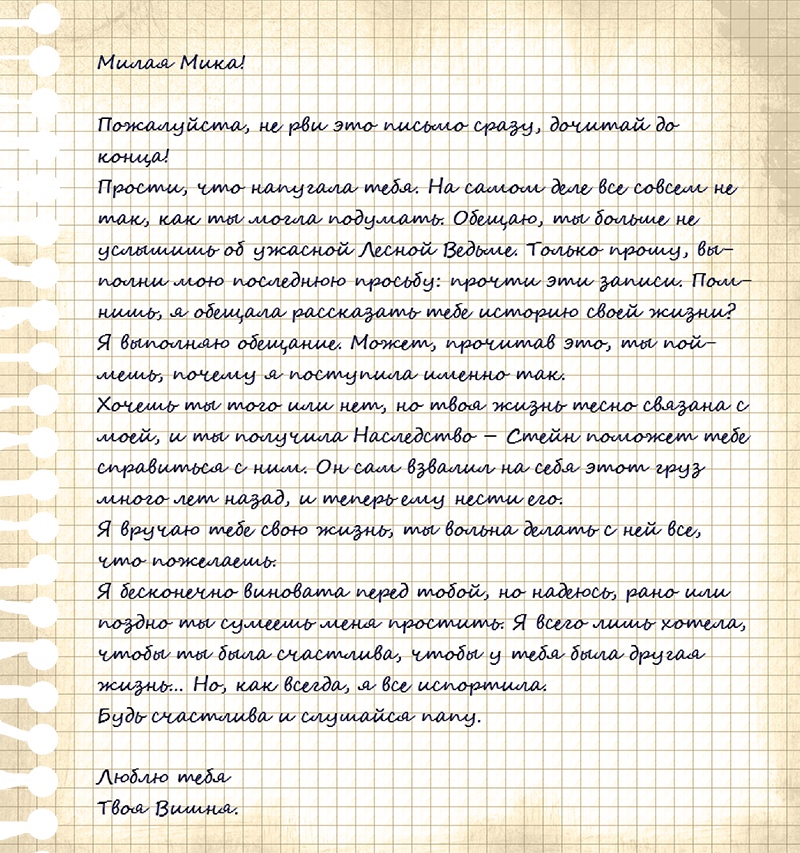 Милая Мика!
Пожалуйста, не рви это письмо сразу, дочитай до
конца!
Прости, что напугала тебя. На самом деле все совсем не
так, как ты могла подумать. Обещаю, ты больше не
услышишь об ужасной Лесной Ведьме. Только прошу, вы–
полни мою последнюю просьбу: прочти эти записи. Пом–
нишь, я обещала рассказать тебе историю своей жизни?
Я выполняю обещание. Может, прочитав это, ты пой–
мешь, почему я поступила именно так.
Хочешь ты того или нет, но твоя жизнь тесно связана с
моей, и ты получила Наследство – Стейн поможет тебе
справиться с ним. Он сам взвалил на себя этот груз
много лет назад, и теперь ему нести его.
Я вручаю тебе свою жизнь, ты вольна делать с ней все,
что пожелаешь.
Я бесконечно виновата перед тобой, но надеюсь, рано или
поздно ты сумеешь меня простить. Я всего лишь хотела,
чтобы ты была счастлива, чтобы у тебя была другая
жизнь... Но, как всегда, я все испортила.
Будь счастлива и слушайся папу.
Люблю тебя
Твоя Вишня.